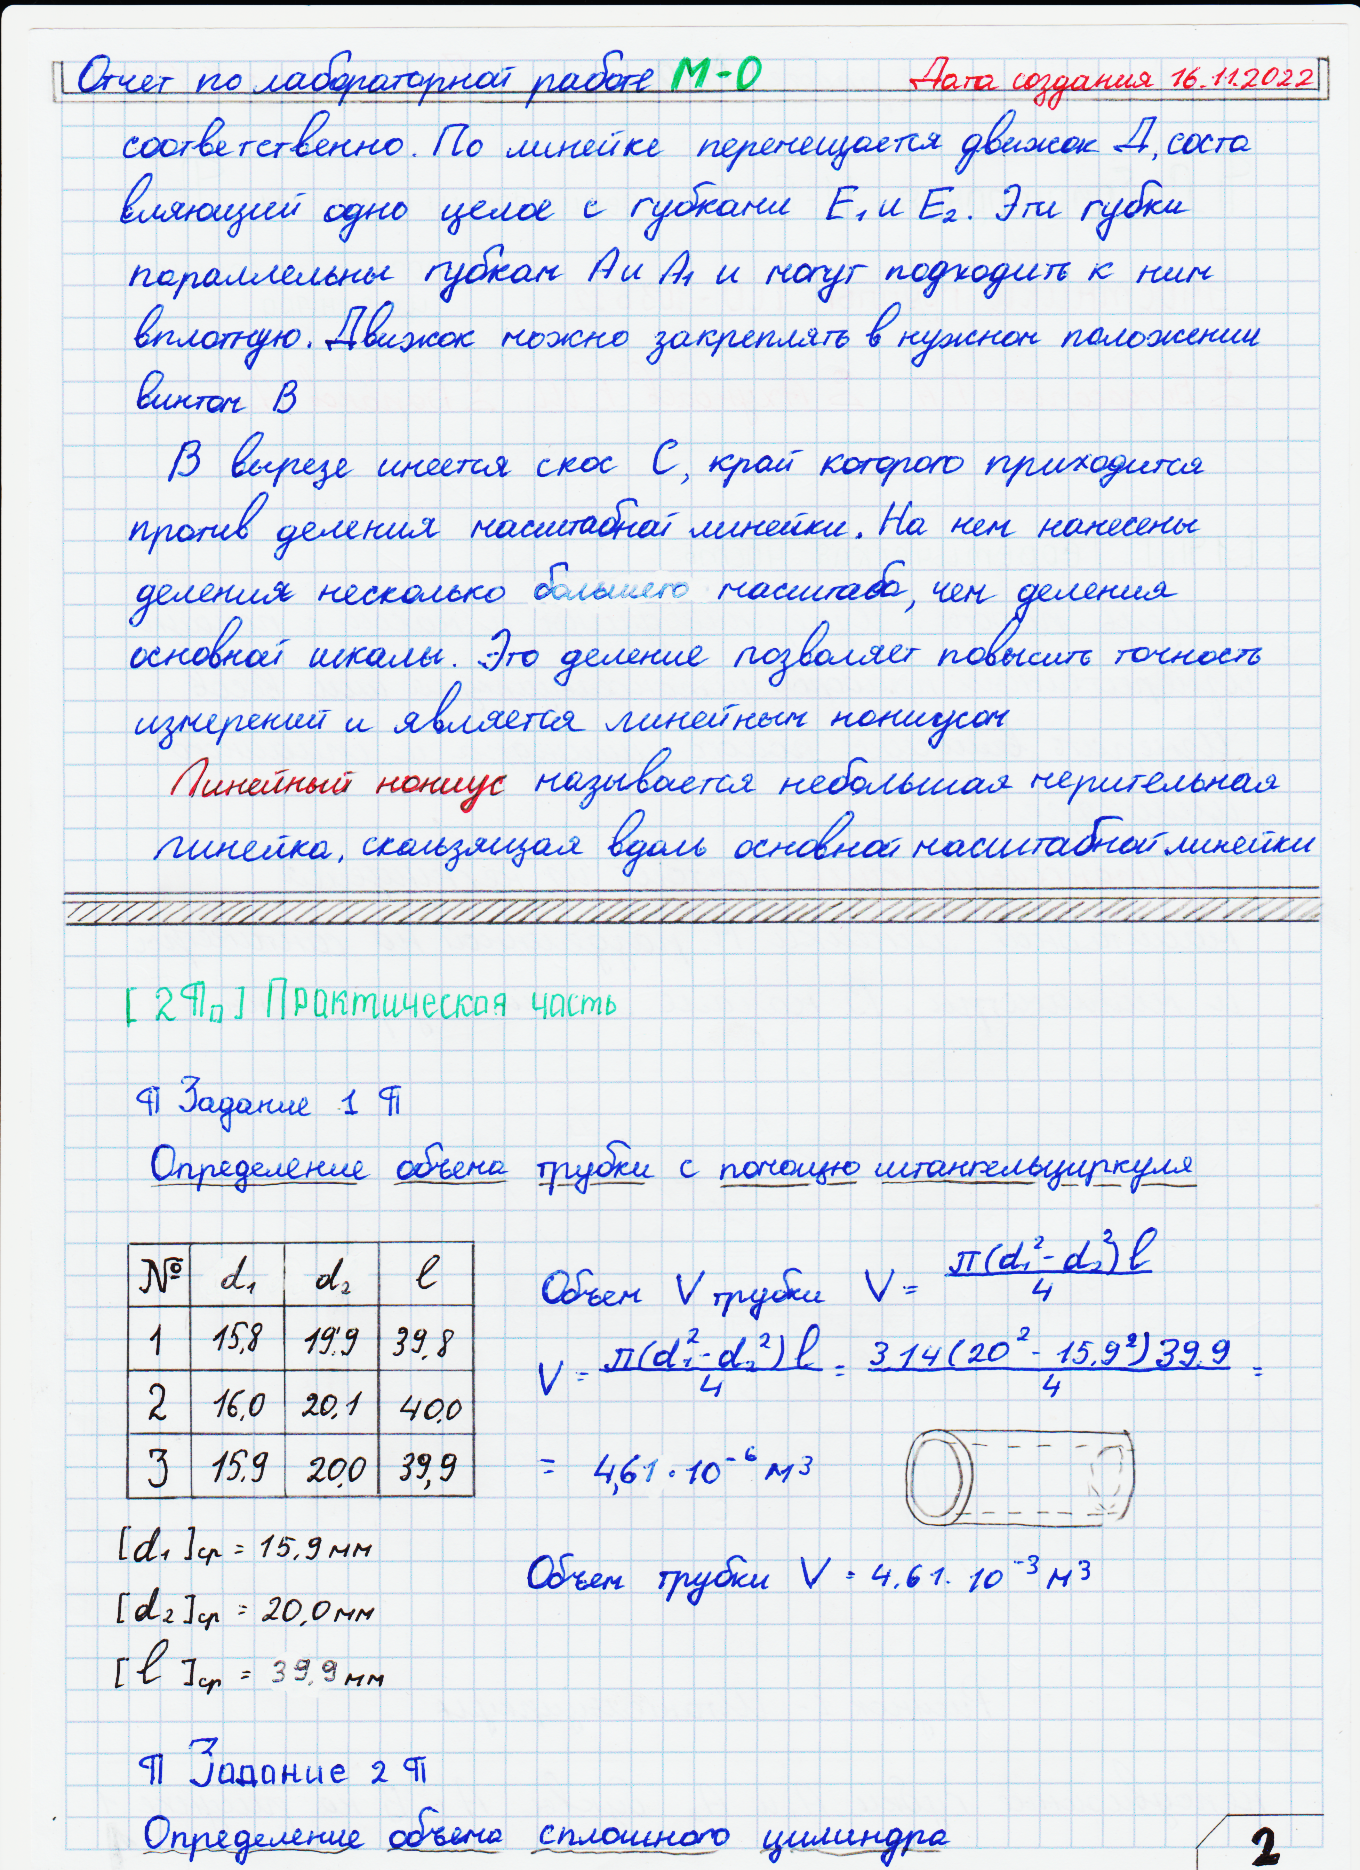 Отчет по лабораторной работе М-0 Дата создания 16.11.2022
соответственно. По линейке перемещается движок Д, соста
вляющий одно целое с губками Е₁ и Е₂. Эти губки
параллельны губкам А и А₁ и могут подходить к ним
вплотную. Движок можно закреплять в нужном положении
винтом В
В вырезе имеется скос С, край которого приходится
против деления масштабной линейки. На нем нанесены
деления несколько большего масштаба, чем деления
основной шкалы. Это деление позволяет повысить точность
измерений и является линейным нониусом
Линейный нониус называется небольшая мерительная
линейка, скользящая вдоль основной масштабной линейки
[2¶п] Практическая часть
¶ Задание 1 ¶
Определение объема трубки с помощью штангельциркуля
№ d₁ d₂ l
1 15,8 19,9 39,8
2 16,0 20,1 40,0
3 15,9 20,0 39,9
[d₁]ср = 15,9 мм
[d₂]ср = 20,0 мм
[l]ср = 39,9 мм
Объем V трубки V = π(d₁² - d₂²)l / 4
V = π(d₁² - d₂²)l / 4 = 3 14(20² - 15,9²)39,9 / 4 =
= 4,61 · 10⁻⁶ м³
Объем трубки V = 4,61 · 10⁻³ м³
¶ Задание 2 ¶
Определение объема сплошного цилиндра
2